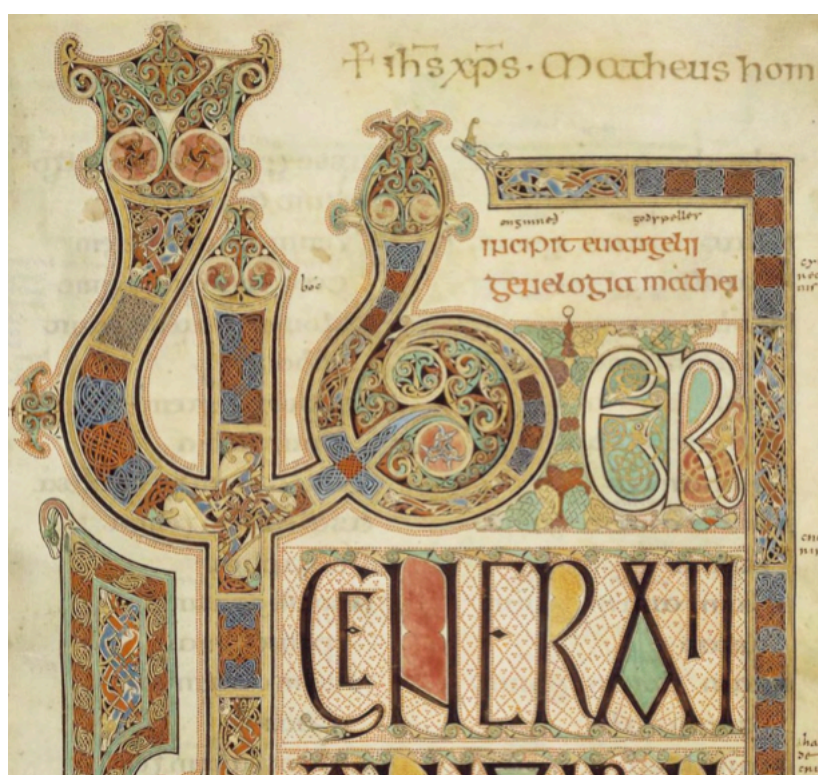 + ihs xps · Matheus hom
onginneð godspelles
incipit euangelii
genelogia mathei
boc
LIBER
GENERATI